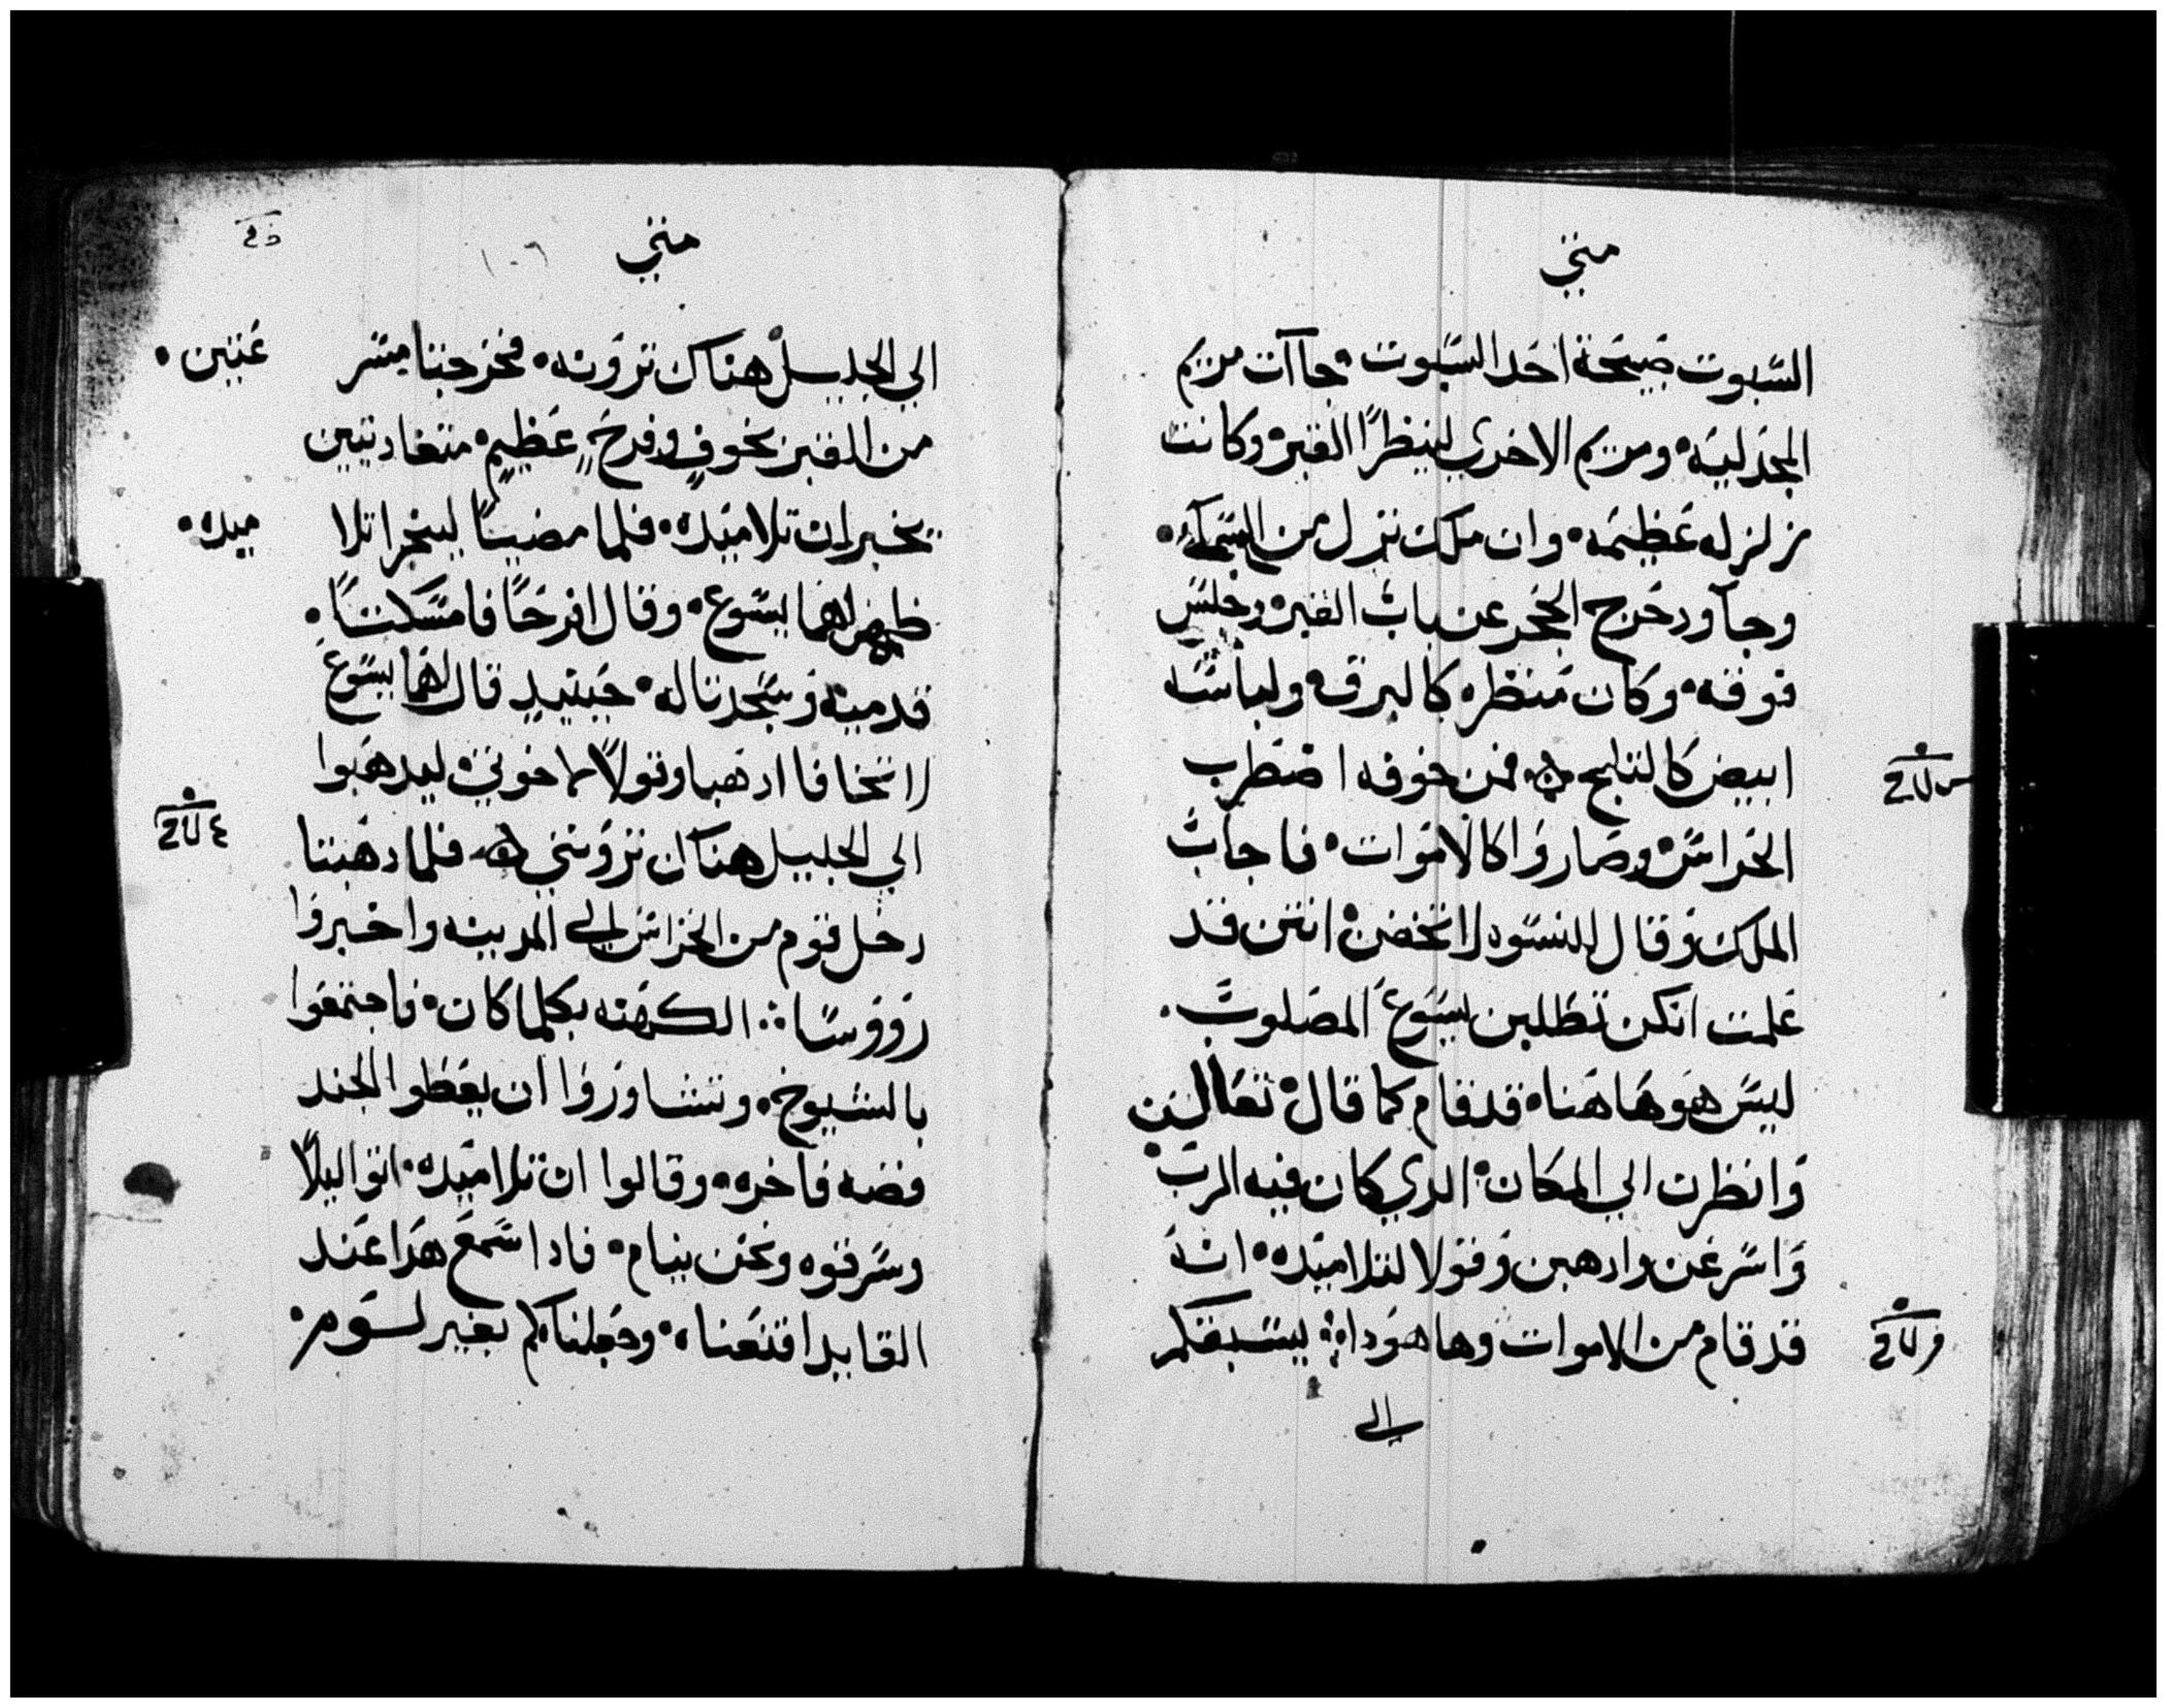 متي
السبوت صبيحة احد السبوت جاآت مريم
المجدليه ومريم الاخري لينظرا القبر وكانت
زلزله عظيمه وان ملك نزل من السمآء
وجآ ودحرج الحجر عن باب القبر وجلس
فوقه وكان منظره كالبرق ولباسه
ابيض كالثلج فمن خوفه اضطرب
الحراس وصاروا كالاموات فاجاب
الملك وقال للنسوه لا تخفن انتن قد
علمت انكن تطلبن يسوع المصلوب
ليس هو هاهنا قد قام كما قال تعالين
وانظرن الي المكان الدي كان فيه الرب
واسرعن وادهبن وقولا لتلاميده انه
قد قام من الاموات وها هودا يسبقكم
الي
متي
١٠٦
الي الجليل هناك ترونه فخرجتا مسرعتين
من القبر بخوف وفرح عظيم متغاديتين
يخبران تلاميده فلما مضيتا ليخبرا تلاميده
ظهر لهما يسوع وقال افرحا فامسكتا
قدميه وسجدتا له حينيد قال لهما يسوع
لا تخافا ادهبا وقولا لاخوتي ليدهبوا
الي الجليل هناك ترونني فلما دهبتا
دخل قوم من الحراس الي المدينه واخبروا
رووسا الكهنه بكلما كان فاجتمعوا
بالشيوخ وتشاوروا ان يعطوا الجند
فضه فاخره وقالوا ان تلاميده اتوا ليلا
وسرقوه ونحن نيام فادا سمع هدا عند
القايد اقنعناه وجعلناكم بغير لوم